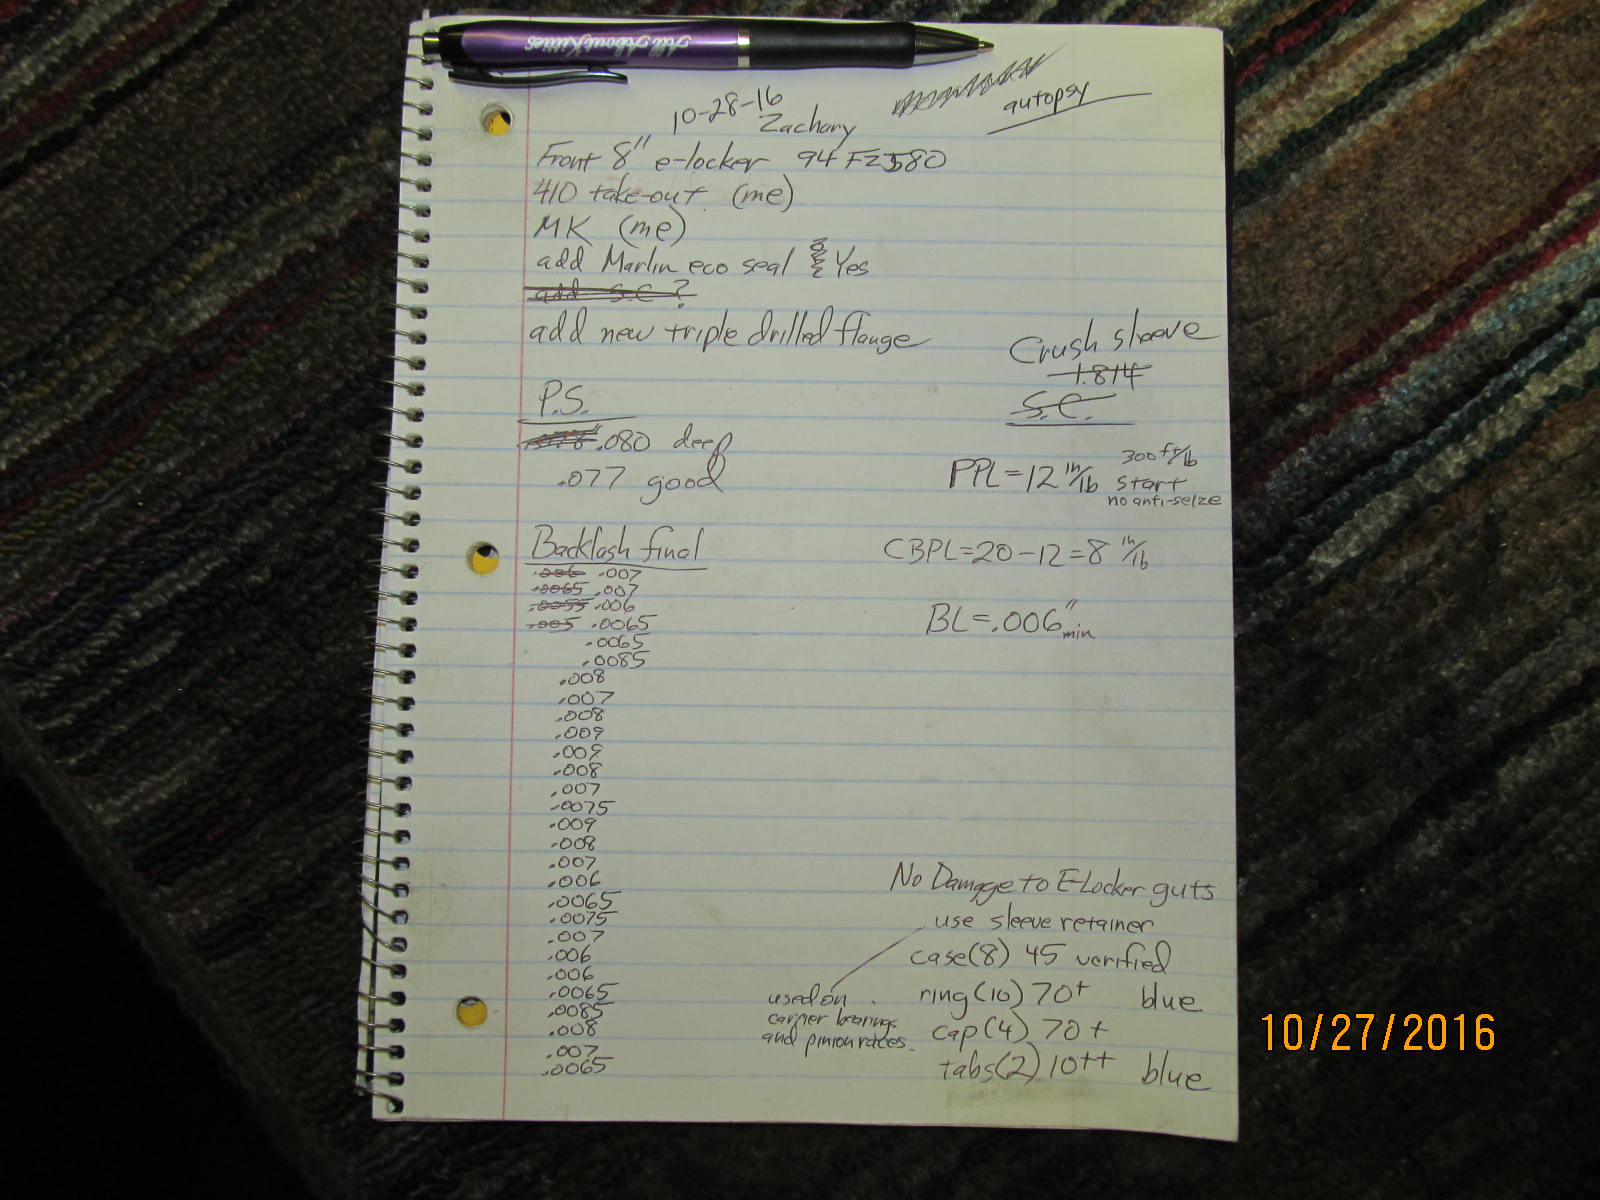 All About Kitties
10-28-16
Zachary
autopsy
Front 8" e-locker 94 FZJ80
410 take-out (me)
MK (me)
add Marlin eco seal Yes
add S.C ?
add new triple drilled flange
Crush sleeve
1.814
S.C.
P.S.
.078" .080 deep
.077 good
PPL=12 in/lb 300 ft/lb
start
no anti-seize
Backlash final
CBPL=20-12=8 in/lb
BL=.006" min
.006 .007
.0065 .007
.0055 .006
.005 .0065
.0065
.0085
.008
.007
.008
.009
.009
.008
.007
.0075
.009
.008
.007
.006
.0065
.0075
.007
.006
.006
.0065
.0085
.008
.007
.0065
No Damage to E-Locker guts
use sleeve retainer
case(8) 45 verified
ring(10) 70+ blue
cap(4) 70+
tabs(2) 10++ blue
used on
carrier bearings
and pinion races.
10/27/2016